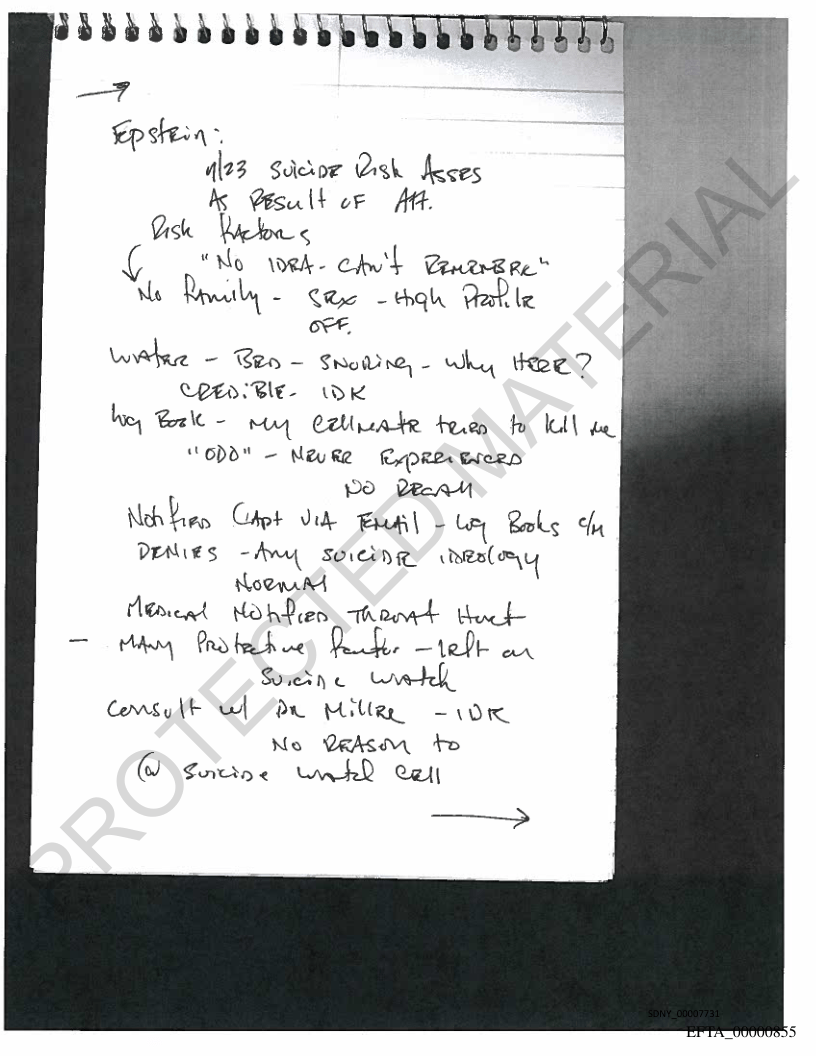 Epstein:
7/23 Suicide Risk Asses
As Result of Att.
Risk Factors
"No IDEA - CAN'T REMEMBER"
No Family - Sex - High Profile
OFF.
Water - BED - SNORING - Why HERE?
CREDIBLE - IDK
Log Book - my cellmate tried to kill me
"ODD" - NEVER EXPERIENCED
NO RECALL
Notified Capt VIA EMAIL - Log Books c/m
DENIES - Any SUICIDE IDEOLOGY
NORMAL
MEDICAL Notified THROAT Hurt
- MANY Protective factor - left on
Suicide watch
Consult w/ DR Miller - IDK
NO REASON to
@ Suicide watch Cell
PROTECTED MATERIAL
SDNY_00007731
EFTA_00000855